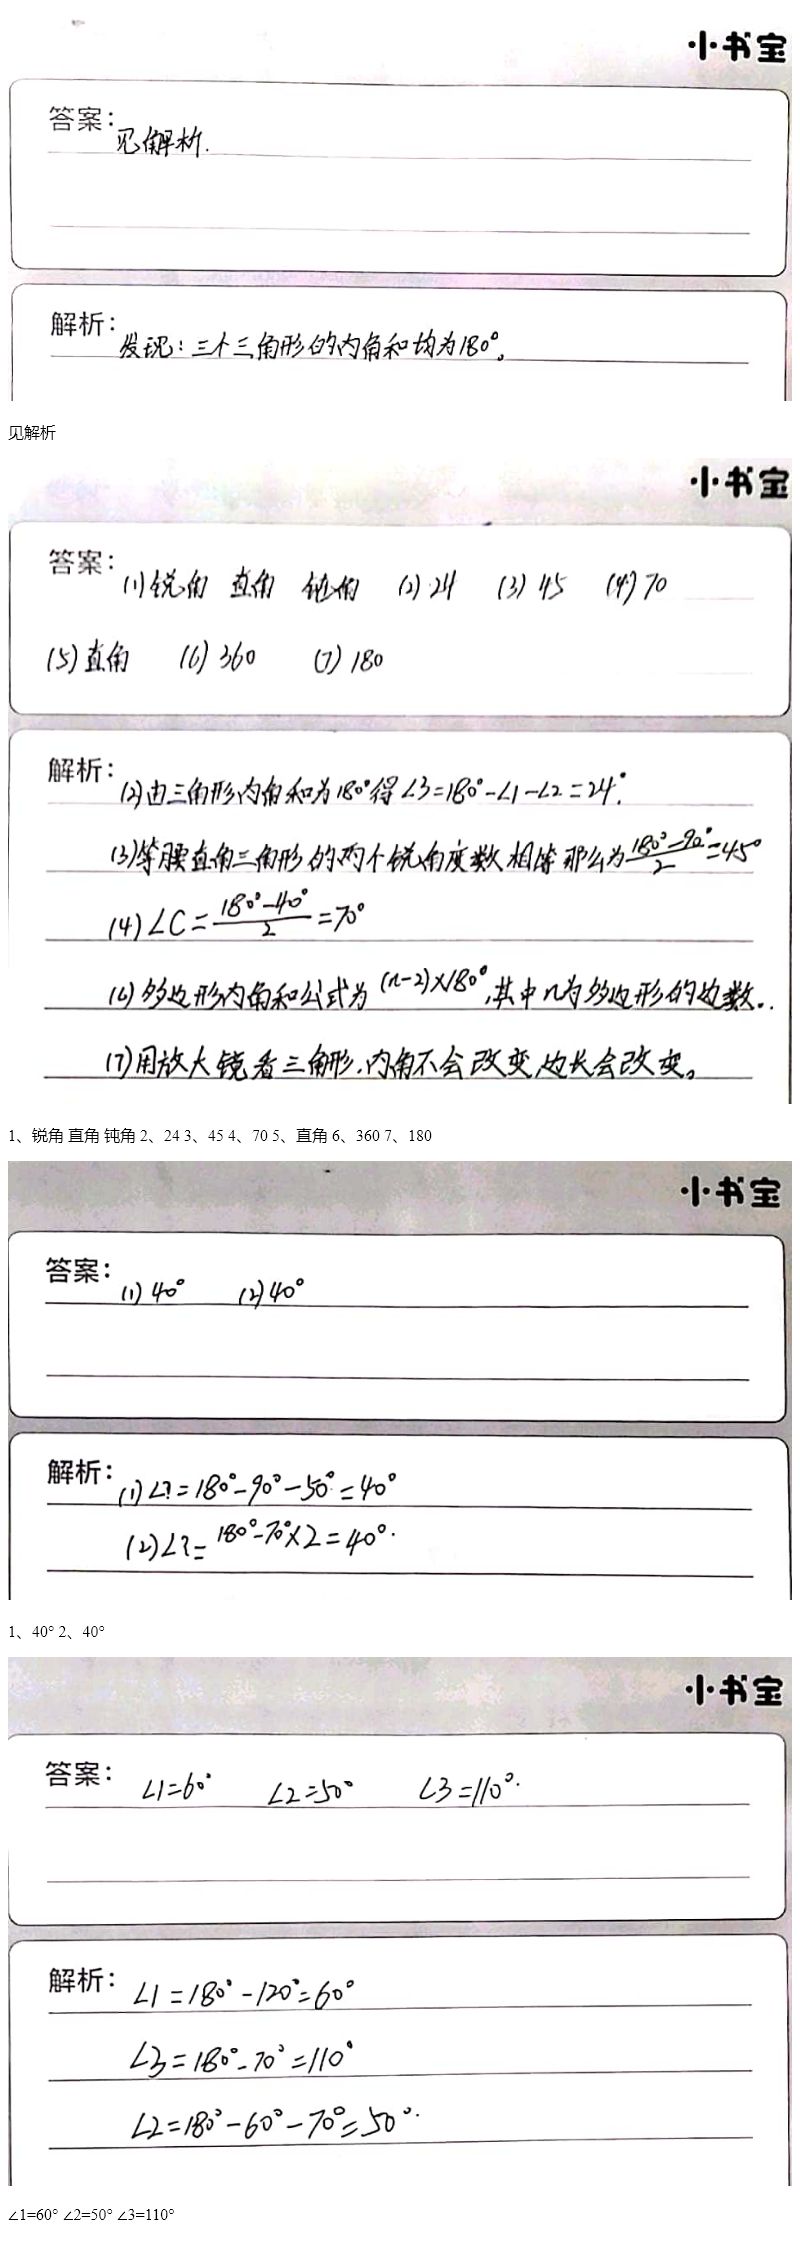 小书宝
答案：
见解析.
解析：
发现：三个三角形的内角和均为180°。
见解析
小书宝
答案：
(1)锐角 直角 钝角 (2)24 (3)45 (4)70
(5)直角 (6)360 (7)180
解析：
(2)由三角形内角和为180°得∠3=180°-∠1-∠2=24°.
(3)等腰直角三角形的两个锐角度数相等那么为(180°-90°)/2=45°
(4)∠C=(180°-40°)/2=70°
(6)多边形内角和公式为(n-2)×180°,其中n为多边形的边数..
(7)用放大镜看三角形,内角不会改变,边长会改变。
1、锐角 直角 钝角 2、24 3、45 4、70 5、直角 6、360 7、180
小书宝
答案：
(1)40° (2)40°
解析：
(1)∠?=180°-90°-50°=40°
(2)∠?=180°-70°×2=40°.
1、40° 2、40°
小书宝
答案：
∠1=60° ∠2=50° ∠3=110°.
解析：
∠1=180°-120°=60°
∠3=180°-70°=110°
∠2=180°-60°-70°=50°.
∠1=60° ∠2=50° ∠3=110°